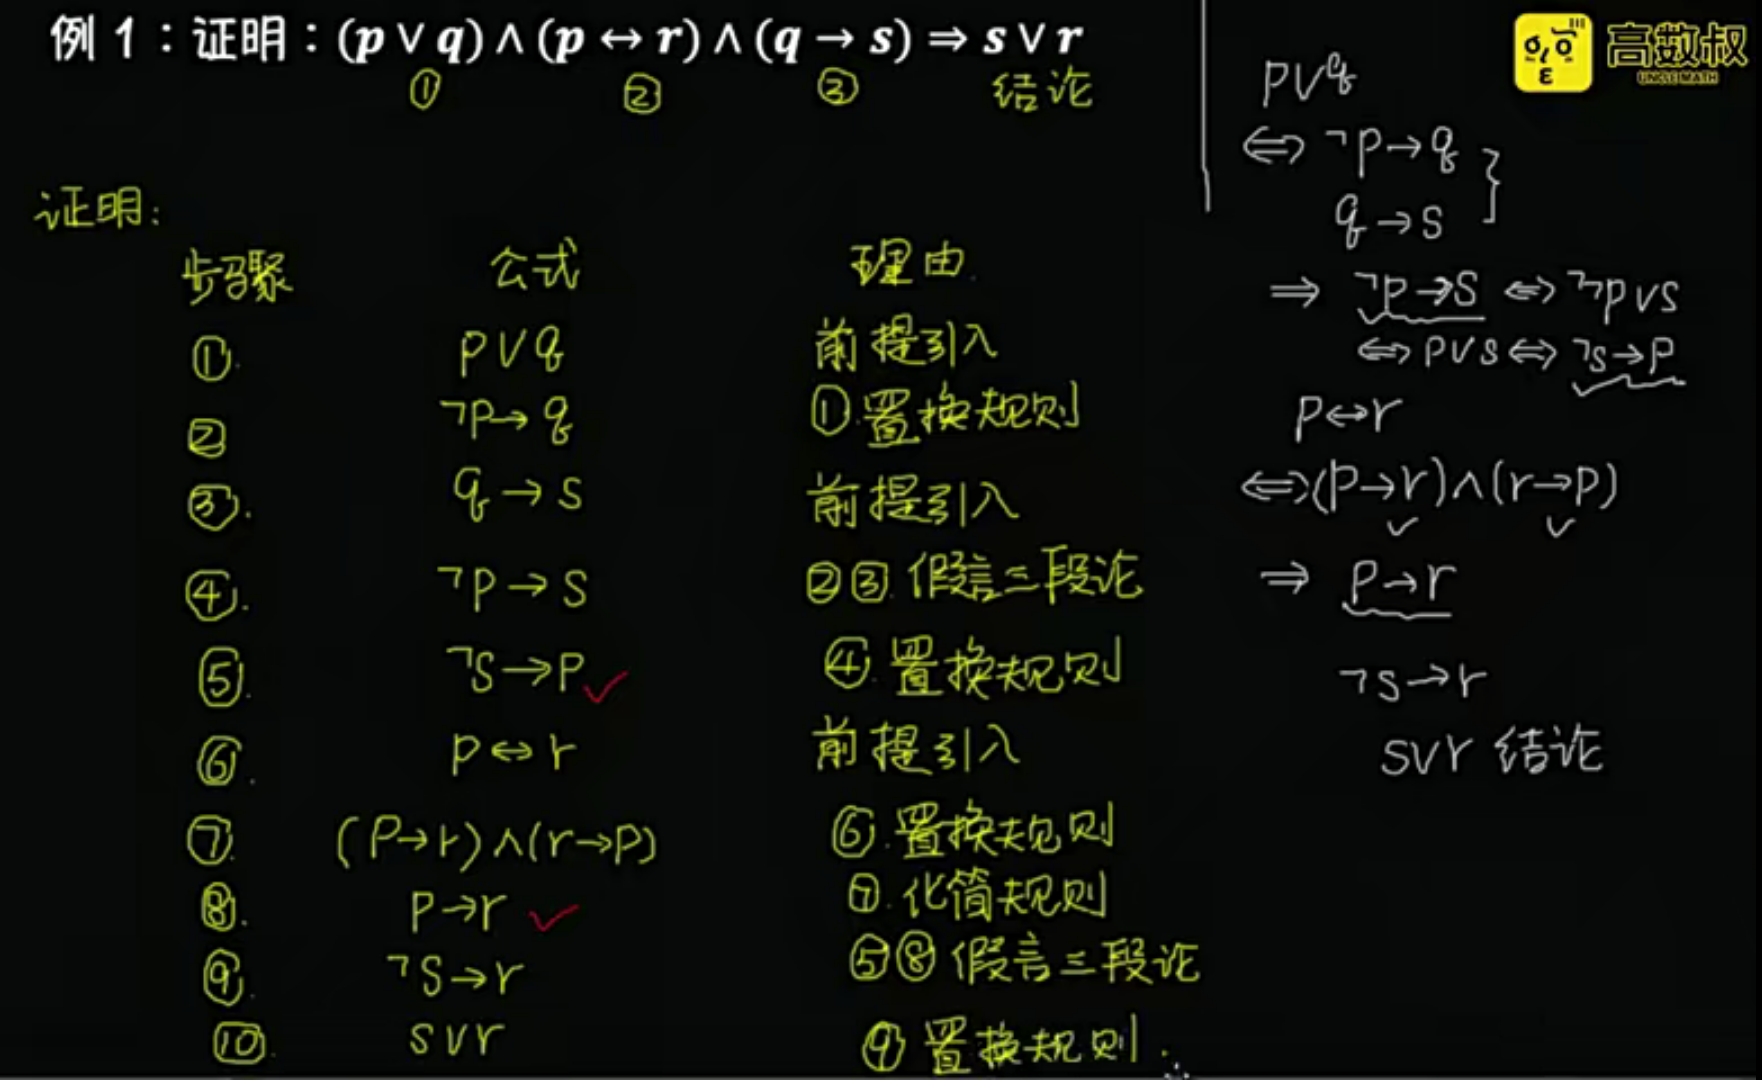 例 1：证明：(p ∨ q) ∧ (p ↔ r) ∧ (q → s) ⇒ s ∨ r
① ② ③ 结论
证明：
步骤 公式 理由
①. p∨q 前提引入
② ¬p→q ①.置换规则
③. q→s 前提引入
④. ¬p→s ②③.假言三段论
⑤. ¬s→p ④.置换规则
⑥. p↔r 前提引入
⑦. (p→r)∧(r→p) ⑥.置换规则
⑧. p→r ⑦.化简规则
⑨. ¬s→r ⑤⑧假言三段论
⑩. s∨r ⑨置换规则.
p∨q
⇔ ¬p→q
q→s
⇒ ¬p→s ⇔ ¬¬p∨s
⇔ p∨s ⇔ ¬s→p
p↔r
⇔(p→r)∧(r→p)
⇒ p→r
¬s→r
s∨r 结论
高数叔
UNCLE MATH